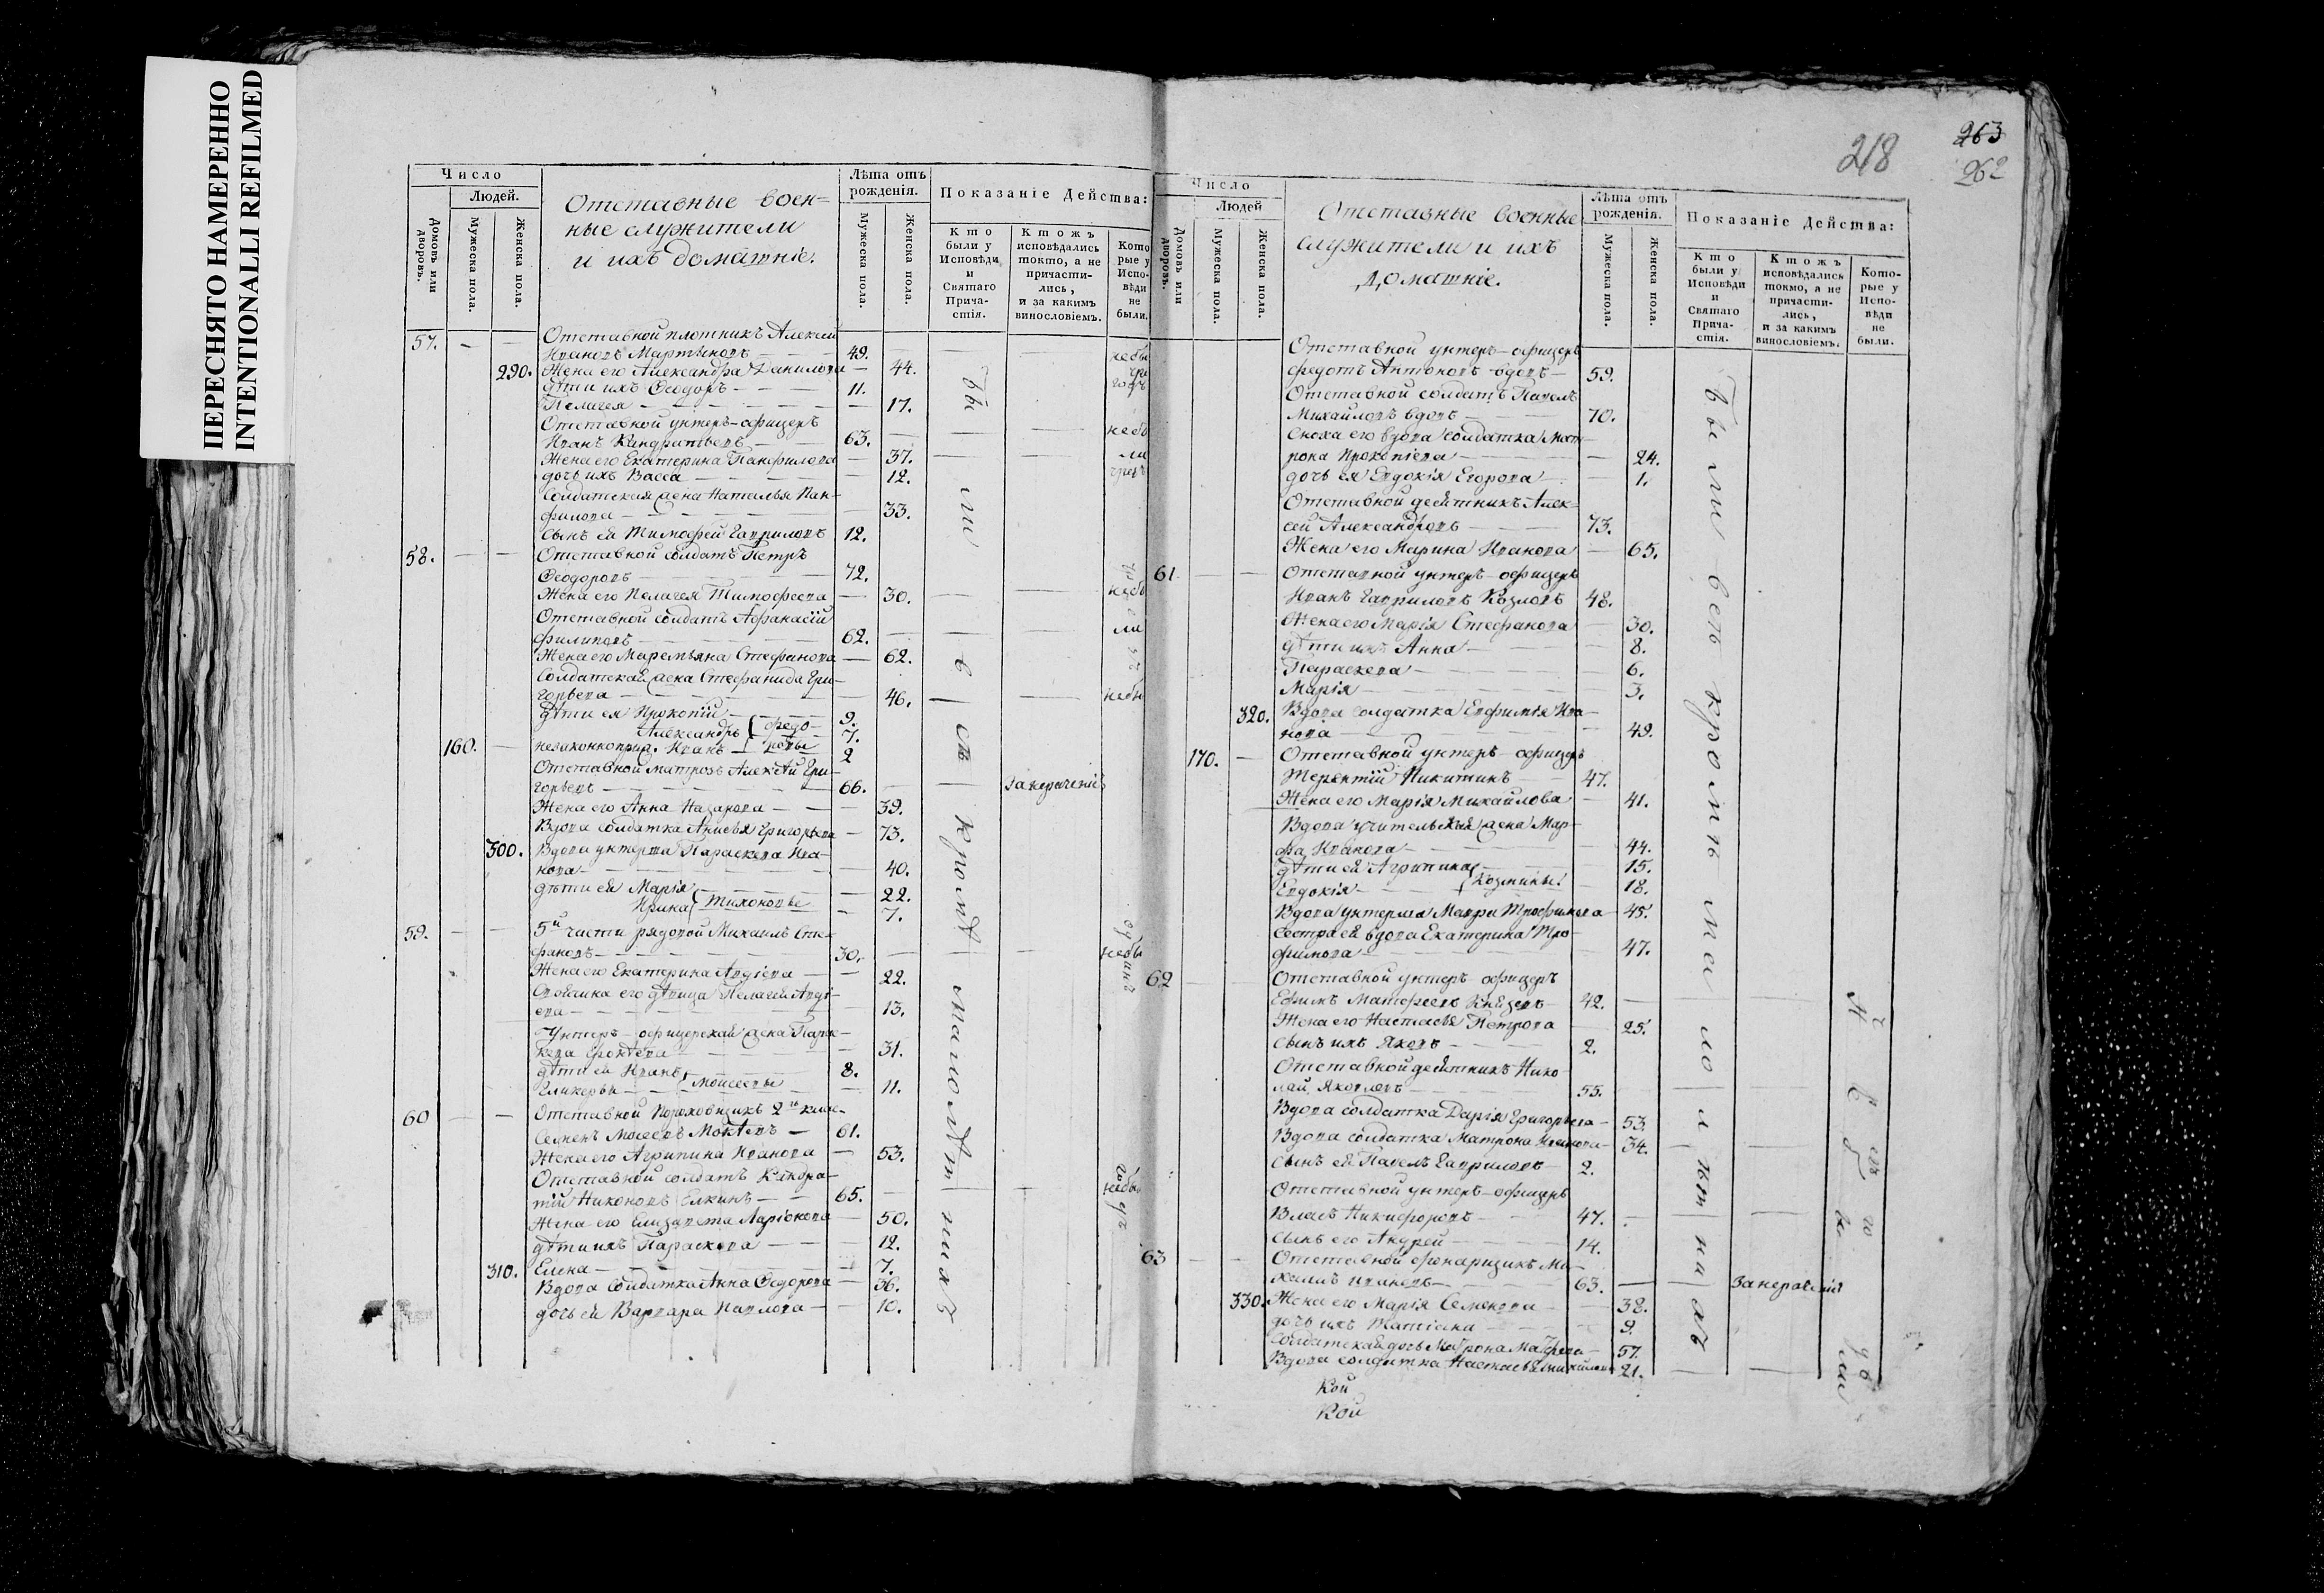 ПЕРЕСНЯТО НАМЕРЕННО
INTENTIONALLI REFILMED
218
263
262
Число
Людей.
Домовъ или дворовъ.
Мужеска пола.
Женска пола.
Отставные воен=
ные служители
и ихъ домашніе.
Лѣта отъ рожденія.
Мужеска пола.
Женска пола.
Показаніе Действа:
Кто были у Исповѣди и Святаго Причастія.
Ктожъ исповѣдались токмо, а не причастились, и за какимъ винословіемъ.
Которые у Исповѣди не были.
57. Отставной плотникъ Алексѣй
Ивановъ Мартыновъ 49.
290. Жена его Александра Данилова 44.
дѣти ихъ Ѳеодоръ 11.
Пелагея 17.
Отставной унтеръ-офицеръ
Иванъ Кандратьевъ 63.
Жена его Екатерина Панфилова 37.
дочь ихъ Васса 12.
Солдатская жена Наталья Пан-
филова 33.
Сынъ ея Тимофей Гавриловъ 12.
58. Отставной солдатъ Петръ
Ѳеодоровъ 72.
Жена его Пелагея Тимофеева 30.
Отставной солдатъ Афанасій
Филиповъ 62.
Жена его Маремьяна Стефанова 62.
Солдатская жена Стефанида Гри-
горьева 46.
дѣти ея Прокопій 9.
Александръ Федо- 7.
160. незаконноприж. Иванъ ровы 2
Отставной матрозъ Алексѣй Гри-
горьевъ 66. За нерачениемъ
Жена его Анна Назарова 39.
Вдова солдатка Анисья Григорьева 73.
300. Вдова унтерша Параскева Ива-
нова 40.
дѣти ея Марія 22.
Ирина Тихоновы 7.
59. 5й части рядовой Михаилъ Сте-
фановъ 30.
Жена его Екатерина Авдіева 22.
Своячина его дѣвица Пелагея Авді-
ева 13.
Унтеръ-офицерская жена Парас-
кева 31.
дѣти ея Иванъ 8.
Гликерья Моисеевы 11.
60 Отставной пороховщикъ 2го клас.
Семенъ Моисеевъ 61.
Жена его Агрипина Иванова 53.
Отставной солдатъ Кандра-
тій Никоновъ Елкинъ 65.
Жена его Елизавета Ларіонова 50.
дѣти ихъ Параскева 12.
310. Елена 7.
Вдова Солдатка Анна Ѳедорова 36.
дочь ея Варвара Павлова 10.
Были
въ
съ
кроит
малолѣт
ши
Число
Людей
Домовъ или дворовъ.
Мужеска пола.
Женска пола.
Отставные военные
служители и ихъ
домашніе.
Лѣта отъ рожденія.
Мужеска пола.
Женска пола.
Показаніе Действа:
Кто были у Исповѣди и Святаго Причастія.
Ктожъ исповѣдались токмо, а не причастились, и за какимъ винословіемъ.
Которые у Исповѣди не были.
Отставной унтеръ-офицеръ
Федотъ Антоновъ вдовъ 59.
Отставной солдатъ Павелъ
Михайловъ вдовъ 70.
Сноха его вдова солдатка Мат-
рона Прокопіева 24.
дочь ея Евдокія Егорова 1.
Отставной десятникъ Алек-
сѣй Александровъ 73.
Жена его Марина Иванова 65.
61. Отставной унтеръ-офицеръ
Иванъ Гавриловъ Козловъ 48.
Жена его Марія Стефанова 30.
дѣти ихъ Анна 8.
Параскева 6.
Марія 3.
320. Вдова солдатка Евфимія Ива-
нова 49.
170. Отставной унтеръ-офицеръ
Терентій Никитинъ 47.
Жена его Марія Михайлова 41.
Вдова учительская жена Мар-
фа Иванова 44.
дѣти ея Агрипина 15.
Евдокія Козмины 18.
Вдова унтерша Мавра Трофимова 45.
Сестра ея вдова Екатерина Тро-
фимова 47.
62 Отставной унтеръ офицеръ
Ефимъ Матфеевъ Князевъ 42.
Жена его Настасья Петрова 25.
Сынъ ихъ Яковъ 2.
Отставной десятникъ Нико-
лай Яковлевъ 55.
Вдова солдатка Дарія Григорьева 53.
Вдова солдатка Матрона Иванова 34.
Сынъ ея Павелъ Гавриловъ 2.
Отставной унтеръ-офицеръ
Власъ Никифоровъ 47.
Сынъ его Андрей 14.
63 Отставной фонарщикъ Ми-
хаилъ Ивановъ 63. За нерачениемъ
330. Жена его Марія Семенова 38.
дочь ихъ Татіана 9.
Солдатская дочь Матрона Матфеева 57.
Вдова солдатка Настасья Михайлова 21.
Кой
Кой
Были
всѣ
кромѣ
мало